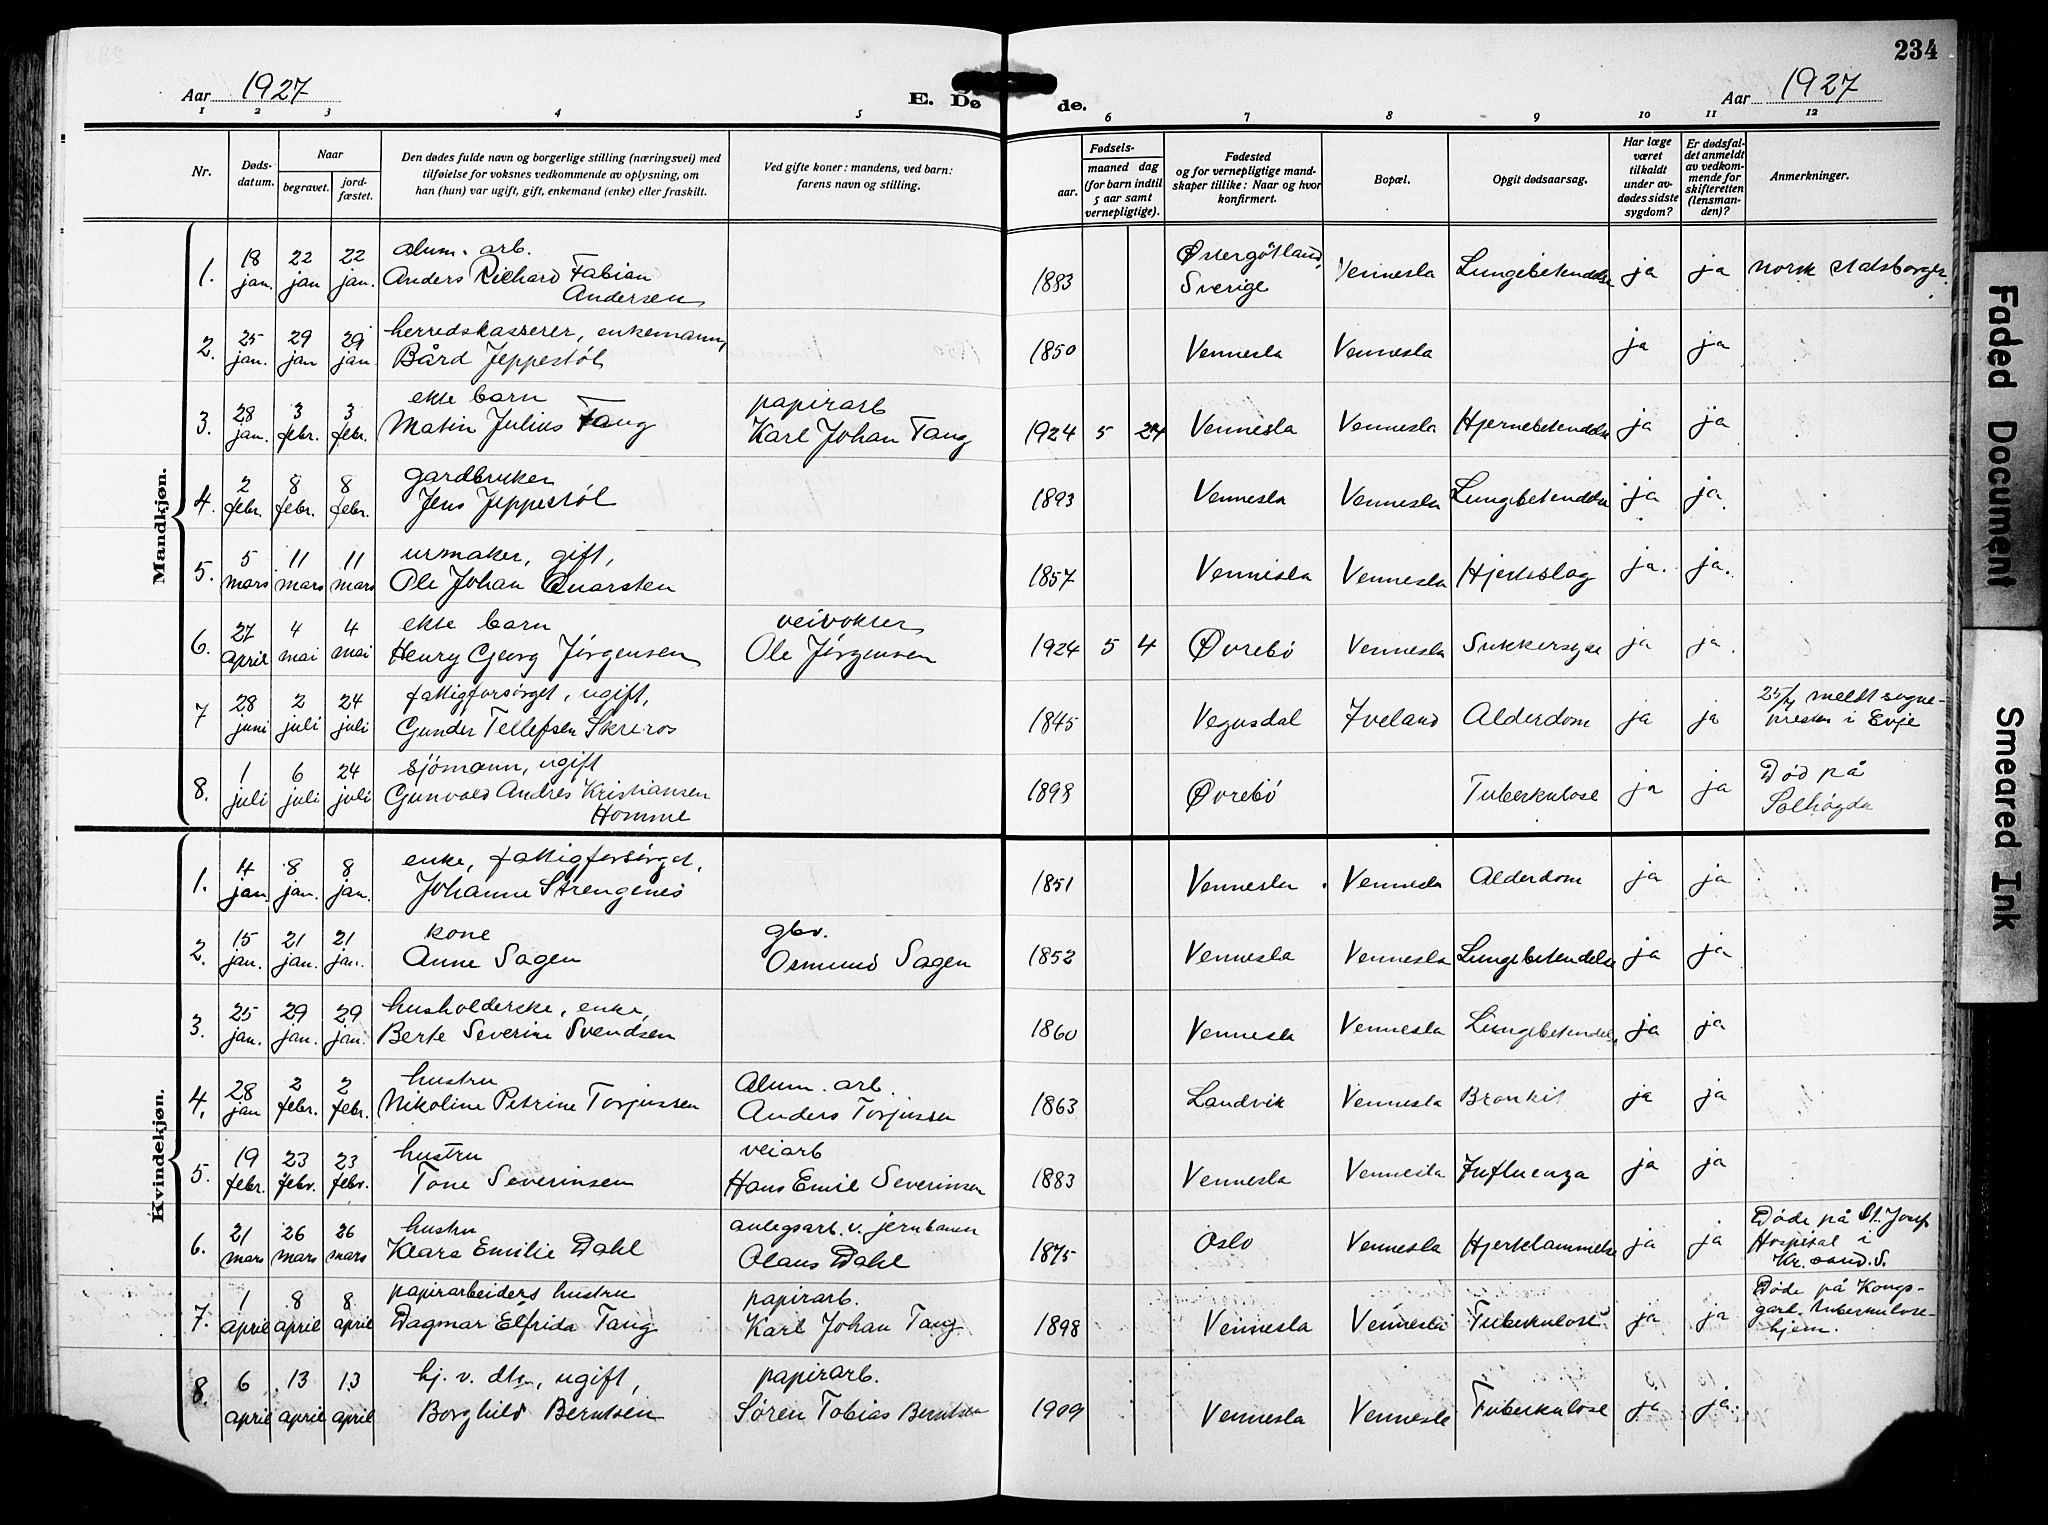 234
Aar 1927
E. Døde.
Aar 1927
1 2 3 4 5 6 7 8 9 10 11 12
Nr.
Døds-
datum.
Naar
begravet.
jord-
fæstet.
Den dødes fulde navn og borgerlige stilling (næringsvei) med
tilføielse for voksnes vedkommende av oplysning, om
han (hun) var ugift, gift, enkemand (enke) eller fraskilt.
Ved gifte koner: mandens, ved barn:
farens navn og stilling.
Fødsels-
aar.
maaned dag
(for barn indtil
5 aar samt
vernepligtige).
Fødested
og for vernepligtige mand-
skaper tillike: Naar og hvor
konfirmert.
Bopæl.
Opgit dødsaarsag.
Har læge
været
tilkaldt
under av-
dødes sidste
sygdom?
Er dødsfal-
det anmeldt
av vedkom-
mende for
skifteretten
(lensman-
den)?
Anmerkninger.
Mandkjøn.
1. 18 jan. 22 jan 22 jan. alum. arb. Anders Rikhard Fabian Andersen 1883 Østergötland, Sverige Vennesla Lungebetendelse ja ja norsk statsborger.
2. 25 jan. 29 jan 29 jan. herredskasserer, enkemann, Bård Jeppestøl 1850 Vennesla Vennesla ja ja
3. 28 jan. 3 febr. 3 febr. ekte barn Matin Julius Tang papirarb Karl Johan Tang 1924 5 24 Vennesla Vennesla Hjernebetendelse ja ja
4. 2 febr. 8 febr. 8 febr. gardbruker Jens Jeppestøl 1893 Vennesla Vennesla Lungebetendelse ja ja.
5. 5 mars 11 mars 11 mars urmaker, gift, Ole Johan Quarsten 1857 Vennesla Vennesla Hjerteslag ja. ja.
6. 27 april 4 mai 4 mai ekte barn Henry Georg Jørgensen veivokter Ole Jørgensen 1924 5 4 Øvrebö Vennesla Sukkersyke ja ja.
7 28 juni 2 juli 24 juli fattigforsørget, ugift, Gunder Tellefsen Skreros 1845 Vegusdal Iveland Alderdom ja ja 25/7 meldt sogne-
presten i Evje
8. 1 juli 6 juli 24 juli sjömann, ugift Gunvald Andres Kristiansen Homme 1898 Øvrebö Tuberkulose ja ja Död på
Solhögda
Kvindekjøn.
1. 4 jan. 8 jan. 8 jan. enke, fattigforsørget, Johanne Strengenes 1851 Vennesla Vennesla Alderdom ja ja
2. 15 jan. 21 jan. 21 jan. kone Anne Sagen gbr. Osmund Sagen 1852 Vennesla Vennesla Lungebetendelse ja ja
3. 25 jan. 29 jan. 29 jan. husholderske, enke, Berte Severine Svendsen 1860 Vennesla Vennesla Lungebetendelse ja ja
4. 28 jan 2 febr. 2 febr. hustru Nikoline Petrine Torjussen Alum. arb. Anders Torjussen 1863 Landvik Vennesla Bronkit ja ja
5. 19 febr. 23 febr. 23 febr. hustru Tone Severinsen veiarb Hans Emil Severinsen 1883 Vennesla Vennesla Influenza ja ja
6. 21 mars 26 mars 26 mars hustru Klara Emilie Dahl anlegsarb. v. jernbanen Olaus Dahl 1875 Oslo Vennesla Hjertelammelse ja ja Döde på St. Josef
Hospital i
Kr. sand. S.
7. 1 april 8 april 8 april papirarbeiders hustru Dagmar Elfrida Tang papirarb. Karl Johan Tang 1898 Vennesla Vennesla Tuberkulose ja ja Döde på Kongs-
gard tuberkulose-
hjem.
8. 6 april 13 april 13 april hj. v. dtr., ugift, Borghild Berntsen papirarb. Søren Tobias Berntsen 1909 Vennesla Vennesla Tuberkulose ja ja.
Faded Document
Smeared Ink